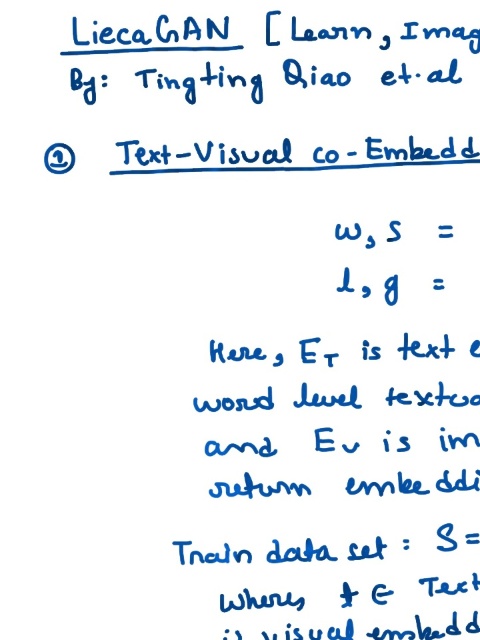 LiecaGAN [Learn, Imag
By: Tingting Qiao et.al
① Text-Visual co-Embedd
w, s =
l, g =
Here, E_T is text e
word level textua
and E_v is im
return embeddi
Train data set : S =
where, t ∈ Text
is visual embedd